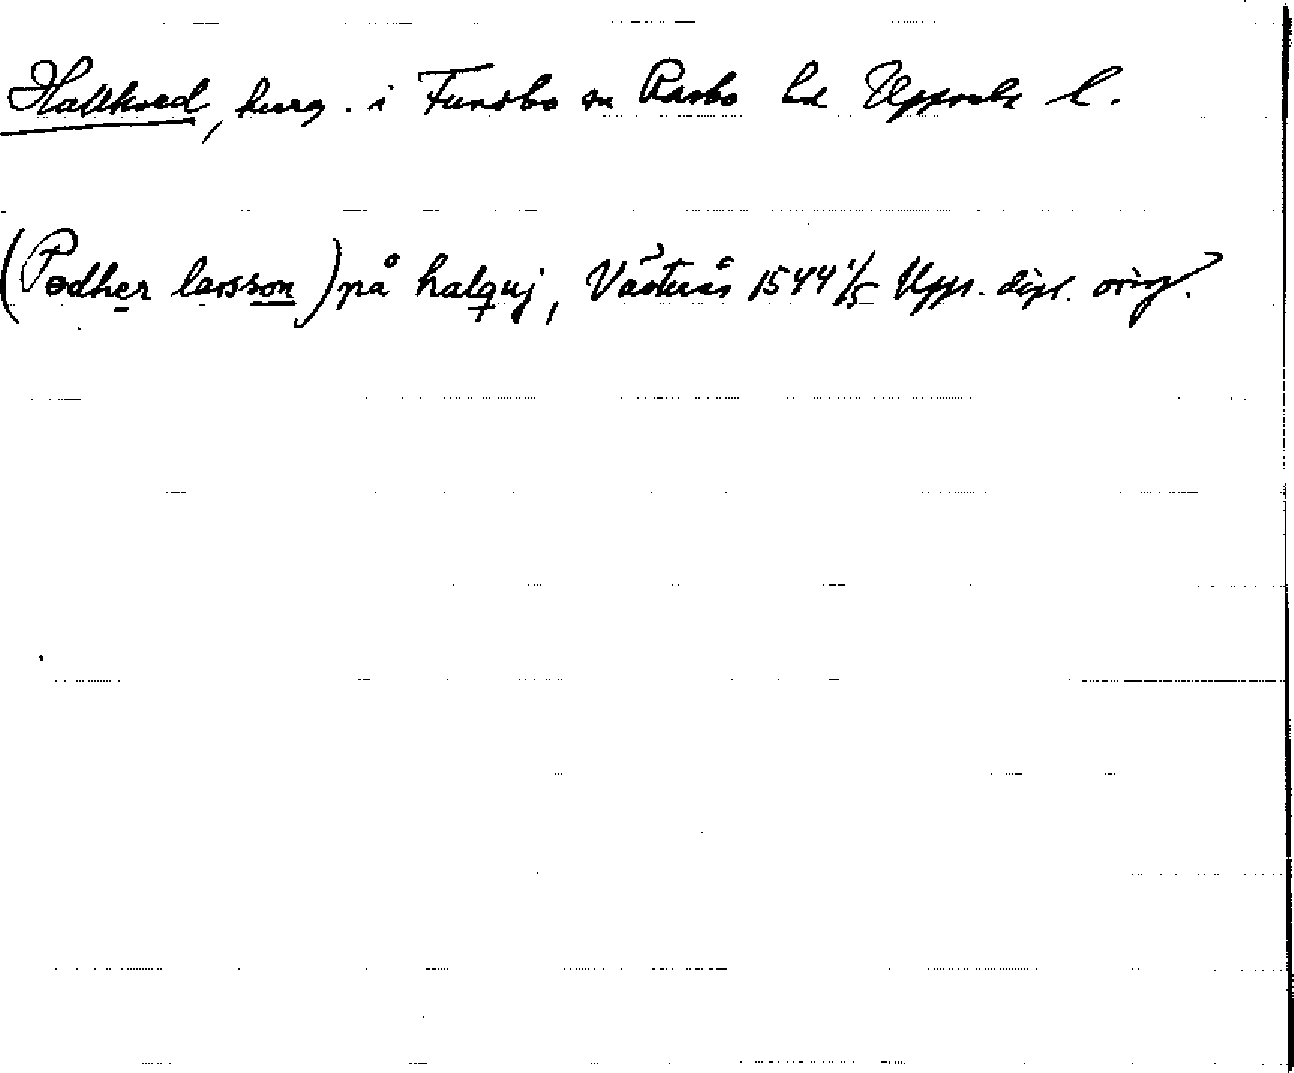 Hallkved, herg. i Funsbo sn Rasbo hd Uppsala l.
(Pædher larsson) på halquj, Västerås 1544 1/5 Upps. dipl. orig.